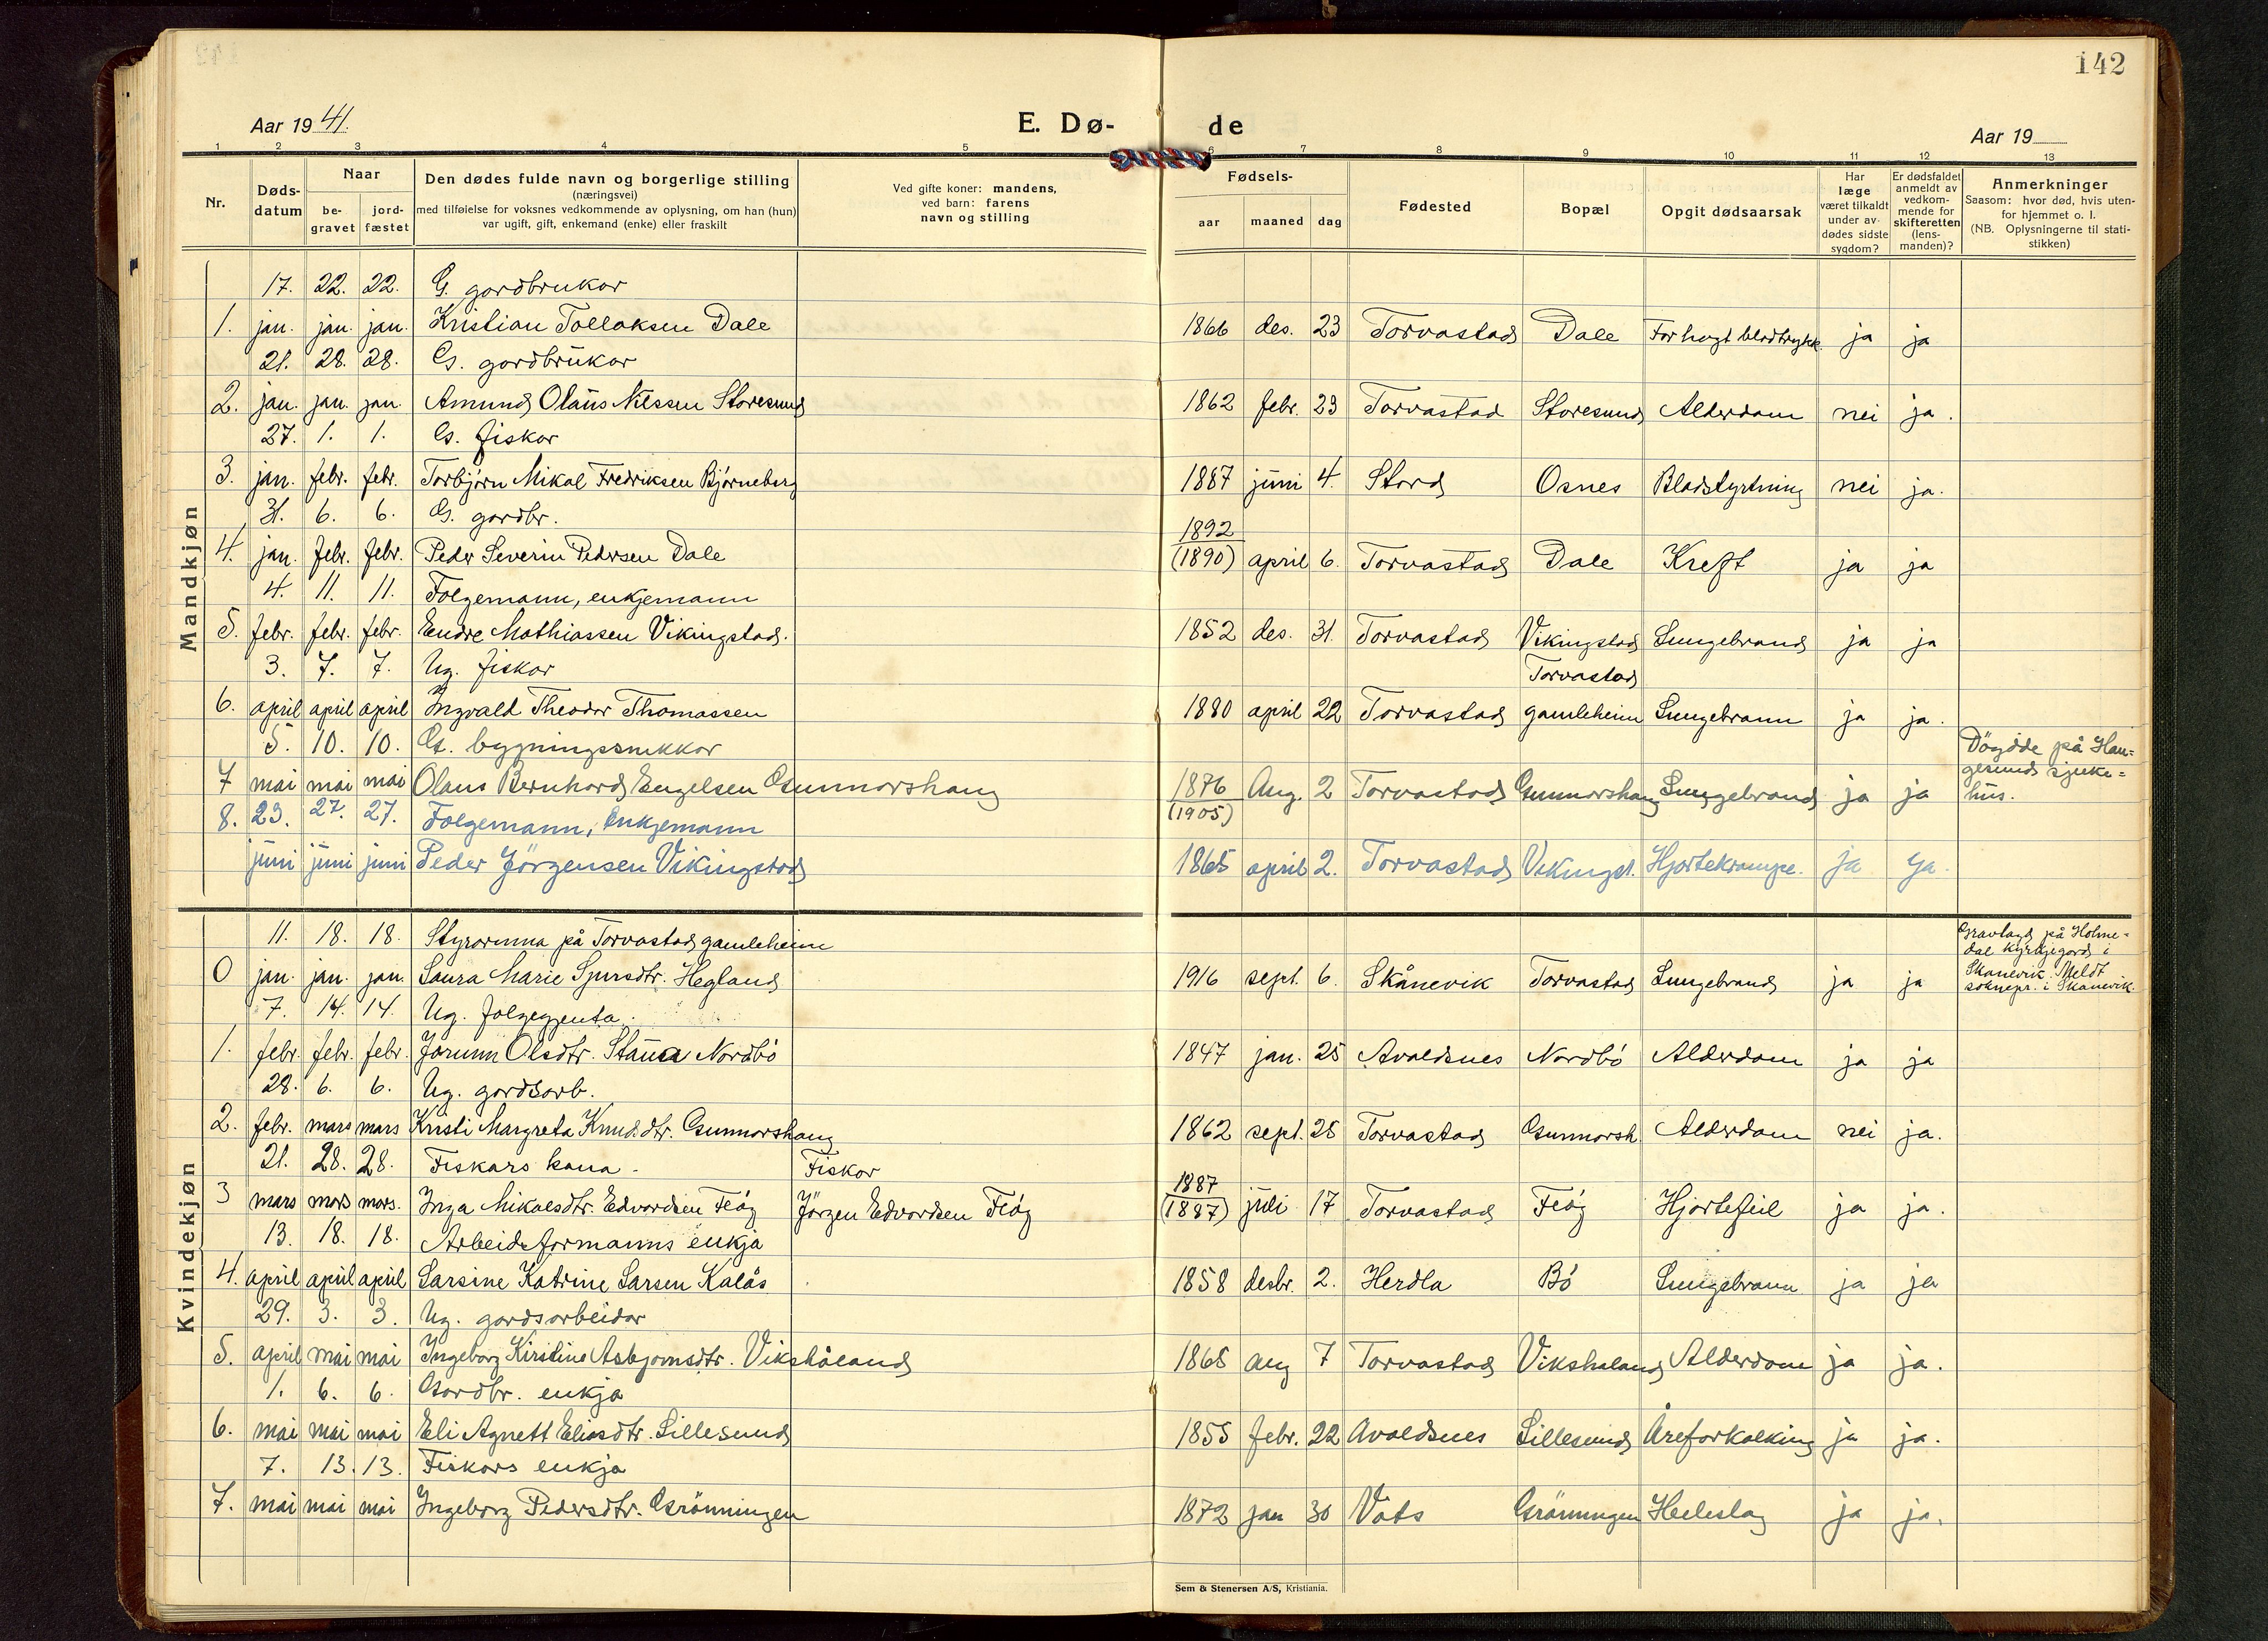 142
Aar 19 41.
E. Dø-
de
Aar 19
1 2 3 4 5 6 7 8 9 10 11 12 13
Nr.
Døds-
datum
Naar
be-
gravet
jord-
fæstet
Den dødes fulde navn og borgerlige stilling
(næringsvei)
med tilføielse for voksnes vedkommende av oplysning, om han (hun)
var ugift, gift, enkemand (enke) eller fraskilt
Ved gifte koner: mandens,
ved barn: farens
navn og stilling
Fødsels-
aar maaned dag
Fødested
Bopæl
Opgit dødsaarsak
Har
læge
været tilkaldt
under av-
dødes sidste
sygdom?
Er dødsfaldet
anmeldt av
vedkom-
mende for
skifteretten
(lens-
manden)?
Anmerkninger
Saasom: hvor død, hvis uten-
for hjemmet o. l.
(NB. Oplysningerne til stati-
stikken)
Mandkjøn
17. 22. 22. G. gardbrukar
1. jan. jan. jan. Kristian Tollaksen Dale 1866 des. 23 Torvastad Dale For høgt blodtrykk ja ja
21. 28. 28. G. gardbrukar
2. jan. jan. jan. Amund Olaus Nilssen Storesund 1862 febr. 23 Torvastad Storesund Alderdom nei ja.
27. 1. 1. G. fiskar
3. jan. febr. febr. Torbjørn Mikal Fredriksen Bjørneberg 1887 juni 4. Stord Osnes Blodstyrtning nei ja.
31. 6. 6. G. gardbr. 1892
4. jan. febr. febr. Peder Severin Pedersen Dale (1890) april 6. Torvastad Dale Kreft ja ja
4. 11. 11. Folgemann, enkjemann
5. febr. febr. febr. Endre Mathiassen Vikingstad. 1852 des. 31. Torvastad Vikingstad Lungebrand ja ja
3. 7. 7. Ug. fiskar Torvastad
6. april april april Ingvald Theodor Thomassen 1880 april 22 Torvastad gamleheim Lungebrann ja ja.
5. 10. 10. G. bygningssnikkar Döydde på Hau-
7 mai mai mai Olaus Bernhard Engelsen Gunnarshaug 1876 Aug. 2 Torvastad Gunnarshaug Lungebrand ja ja gesunds sjuke-
(1905) hus.
8. 23. 27. 27. Folgemann, Enkjemann
juni juni juni Peder Jörgensen Vikingstad 1865 april 2. Torvastad Vikingst. Hjertekrampe. ja ja.
Kvindekjøn
11. 18. 18. Styrarinna på Torvastad gamleheim Gravlagd på Holme-
dal kyrkjegard i
0 jan. jan. jan. Laura Marie Sjursdtr. Hegland 1916 sept. 6. Skånevik Torvastad Lungebrand ja ja Skånevik. Meldt
soknepr. i Skånevik
7. 14. 14. Ug. folgegjenta.
1. febr. febr. febr. Jorunn Olsdtr. Stava Nordbö 1847 jan. 25 Avaldsnes Nordbö Alderdom ja ja
28. 6. 6. Ug. gardsarb.
2. febr. mars mars Kristi Margreta Knudsdtr. Gunnarshaug 1862 sept. 25 Torvastad Gunnarsh. Alderdom nei ja.
21. 28. 28. Fiskars kona - Fiskar 1887
3 mars mars mars. Inga Mikalsdtr. Edvardsen Feöy Jörgen Edvardsen Feöy (1887) juli 17 Torvastad Feöy Hjertefeil ja ja.
13. 18. 18. Arbeidsformanns enkja
4. april april april Larsine Katrine Larsen Kalås 1858 desbr. 2. Herdla Bö Lungebrann ja ja
29. 3. 3. Ug. gardsarbeidar
5. april mai mai Ingeborg Kirstine Asbjørnsdtr. Vikshåland 1865 aug 7 Torvastad Vikshaland Alderdom ja ja.
1. 6. 6. Gardbr. enkja
6. mai mai mai Eli Agnett Eliasdtr. Lillesund 1855 febr. 22 Avaldsnes Lillesund Åreforkalking ja ja.
7. 13. 13. Fiskars enkja
7. mai mai mai Ingeborg Pedersdtr. Grönningen 1872 jan 30 Vats Grönningen Heileslag ja ja.
Sem & Stenersen A/S, Kristiania.